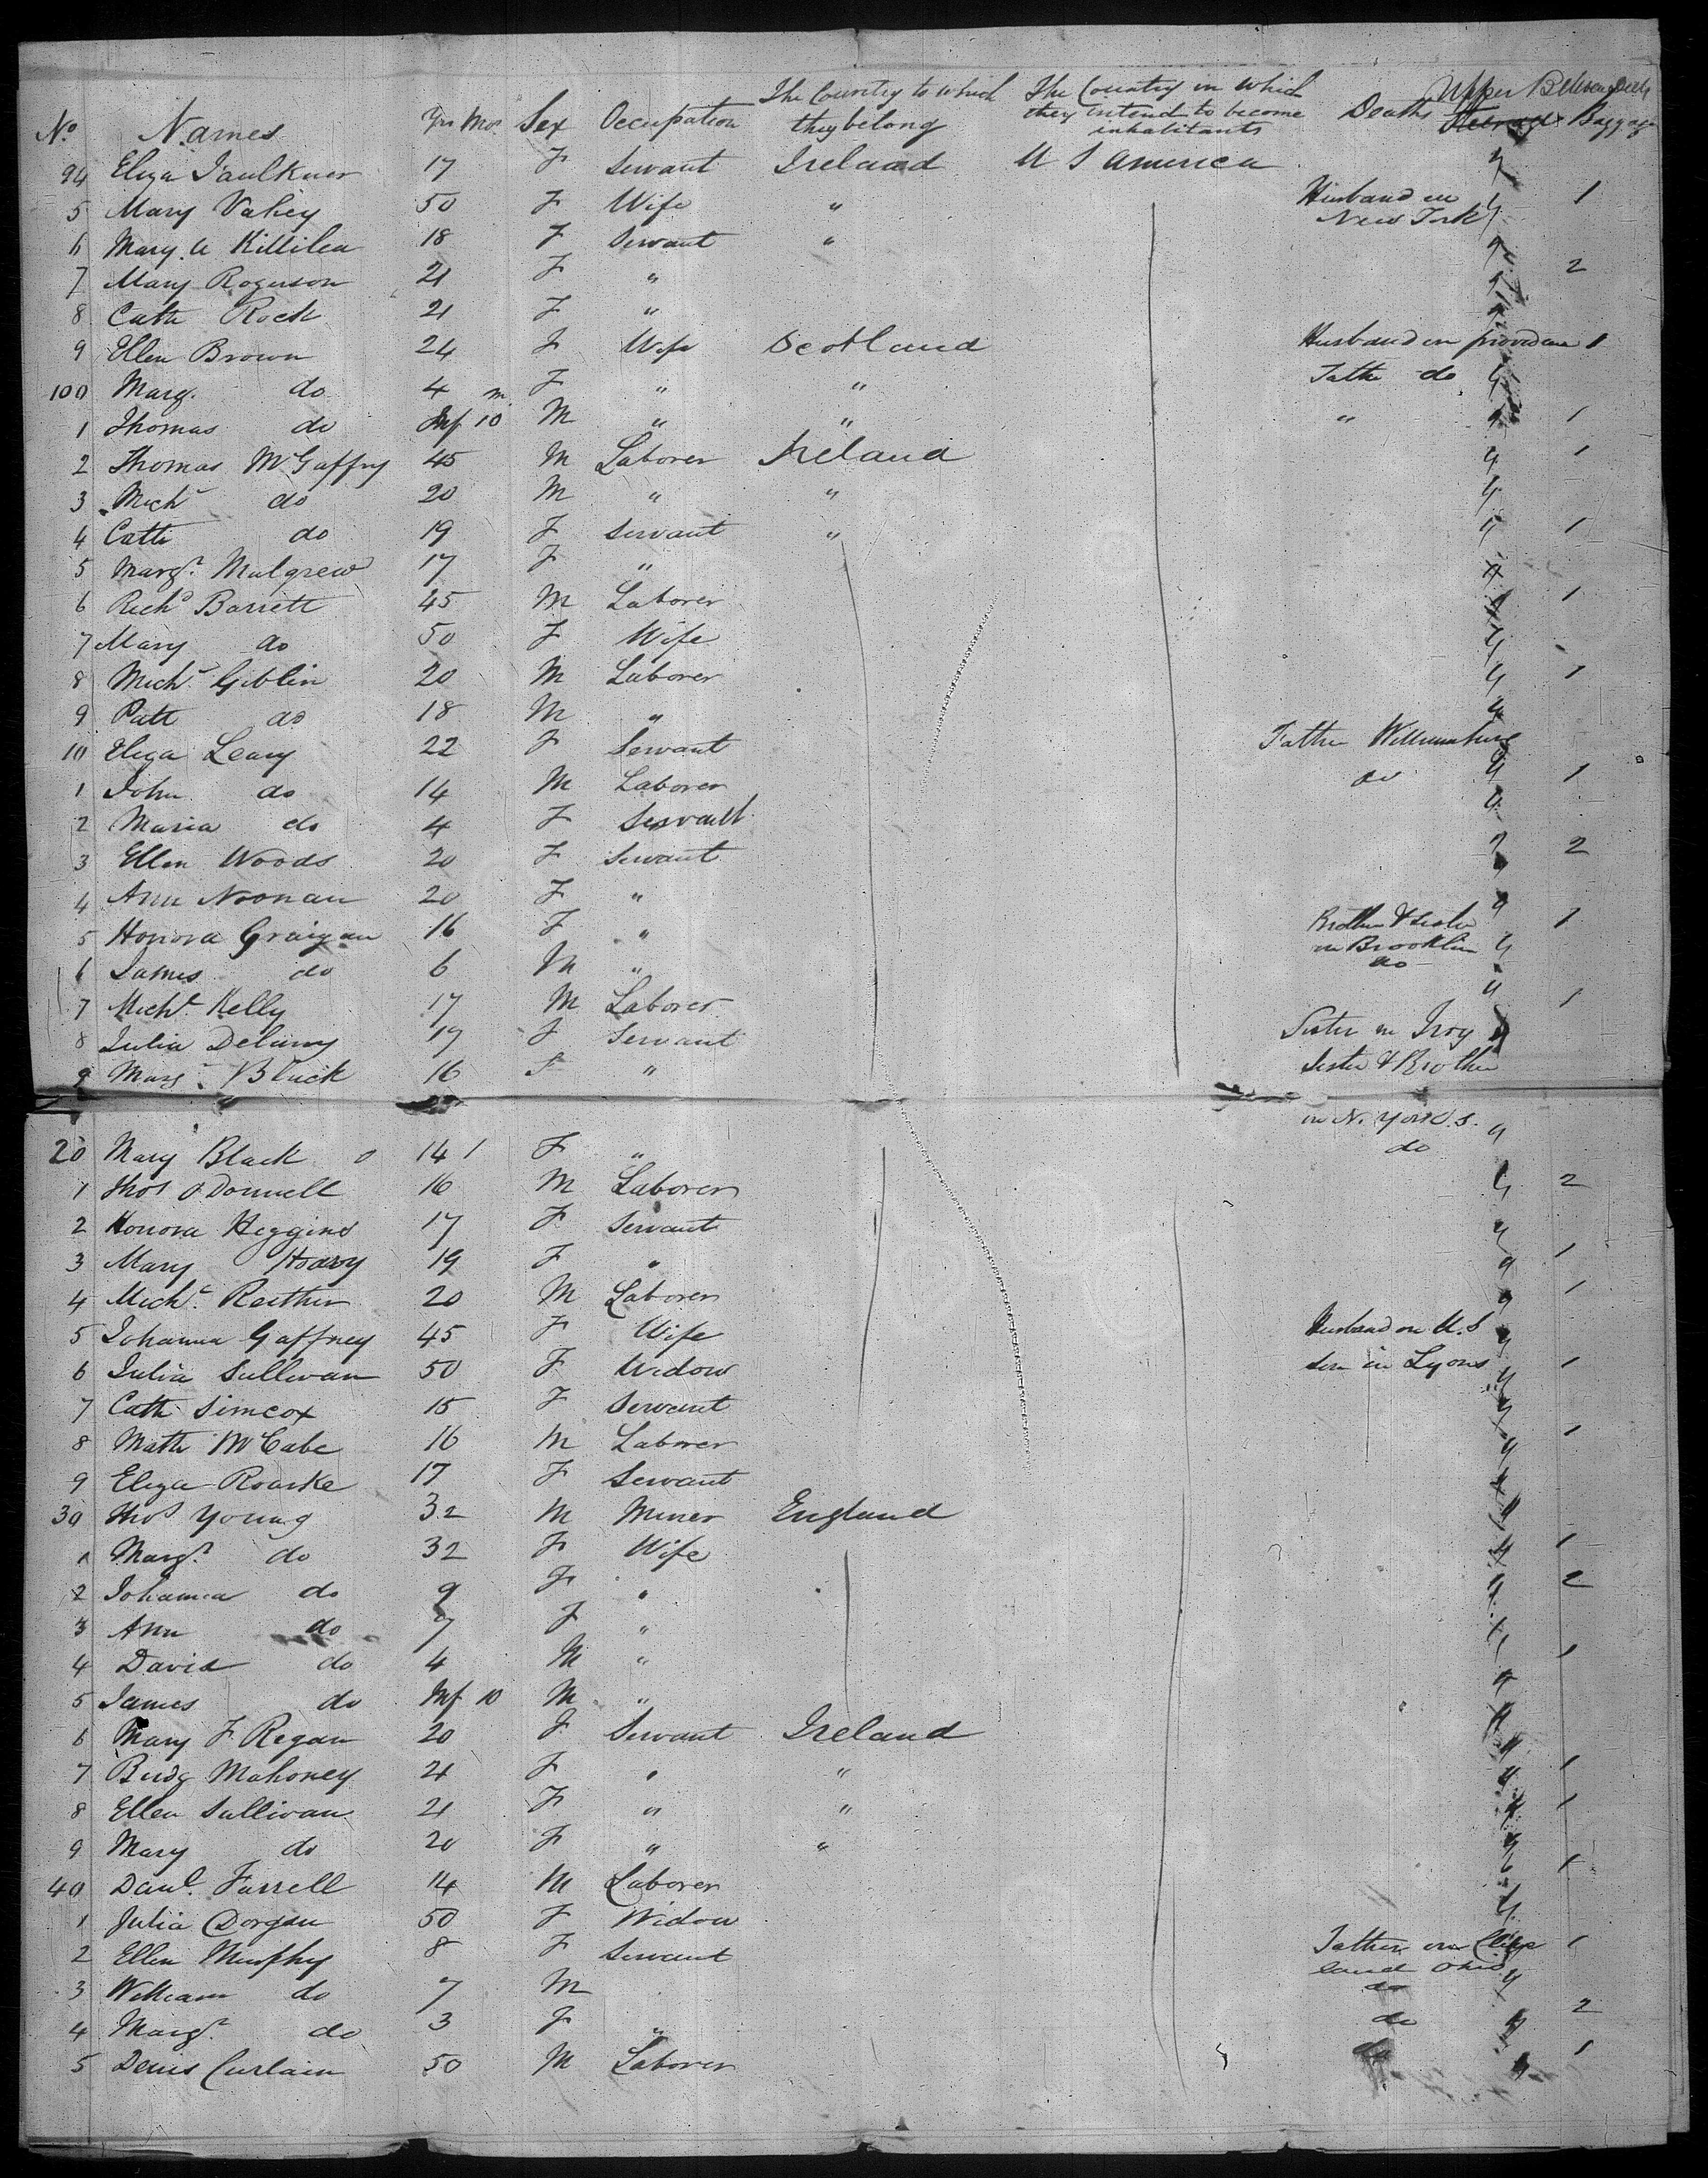 No Names Yrs Mos. Sex Occupation The Country to which they belong The Country in which they intend to become inhabitants Deaths Upper Between Decks Steerage Baggage
94 Eliza Faulkner 17 F Servant Ireland U S America 4
5 Mary Vahey 50 F Wife " Husband in New York 4 1
6 Mary A Killilea 18 F Servant " 4
7 Mary Rogerson 21 F " 4 2
8 Cath Rock 21 F "
9 Ellen Brown 24 F Wife Scotland Husband in providence 1
100 Marg. do 4 F " " Father do 4
1 Thomas do Inf 10 m M " " " 4 1
2 Thomas McGaffry 45 M Laborer Ireland 4 1
3 Michl do 20 M " " 4
4 Cath do 19 F Servant " 4 1
5 Margt Mulgrew 17 F " 4
6 Richd Barrett 45 M Laborer 4 1
7 Mary do 50 F Wife 4
8 Michl Giblin 20 M Laborer 4 1
9 Patt do 18 M " 4
10 Eliza Leary 22 F Servant Father Williamsburg
1 John do 14 M Laborer do 4 1
2 Maria do 4 F Servant
3 Ellen Woods 20 F Servant 2
4 Ann Noonan 20 F " 4
5 Honora Graigan 16 F " Brother & Sister in Brooklin 4 1
6 James do 6 M " do 4
7 Michl Kelly 17 M Laborer 1
8 Julia Delany 17 F Servant Sister in Troy
9 Margt Black 16 F " Sister & Brother
in N. York U.S. 4
20 Mary Black 14 1 F " do
1 Thos O Donnell 16 M Laborer 4 2
2 Honora Heggins 17 F Servant 4
3 Mary 19 F " 4 1
4 Michl 20 M Laborer 4 1
5 Johanna Gaffney 45 F Wife Husband in U.S 4
6 Julia Sullivan 50 F Widow Son in Lyons 4 1
7 Cath Simcox 15 F Servant 4
8 Matth McCabe 16 M Laborer 4 1
9 Eliza Roarke 17 F Servant 4
30 Thos Young 32 M Miner England 4
1 Margt do 32 F Wife 4 1
2 Johanna do 9 F " 4 2
3 Ann do 7 F "
4 David do 4 M " 1
5 James do Inf 10 M " 4
6 Mary F Regan 20 F Servant Ireland 4
7 Bridg Mahoney 21 F " " 4 1
8 Ellen Sullivan 21 F " " 4 1
9 Mary do 20 F " " 4
40 Danl. Farrell 14 M Laborer 1
1 Julia Dorgan 50 F Widow 4
2 Ellen Murphy 8 F Servant Father in Cleveland Ohio 1
3 William do 7 M do 4
4 Margt do 3 F " do 4 2
5 Denis Curlain 50 M Laborer do 4 1